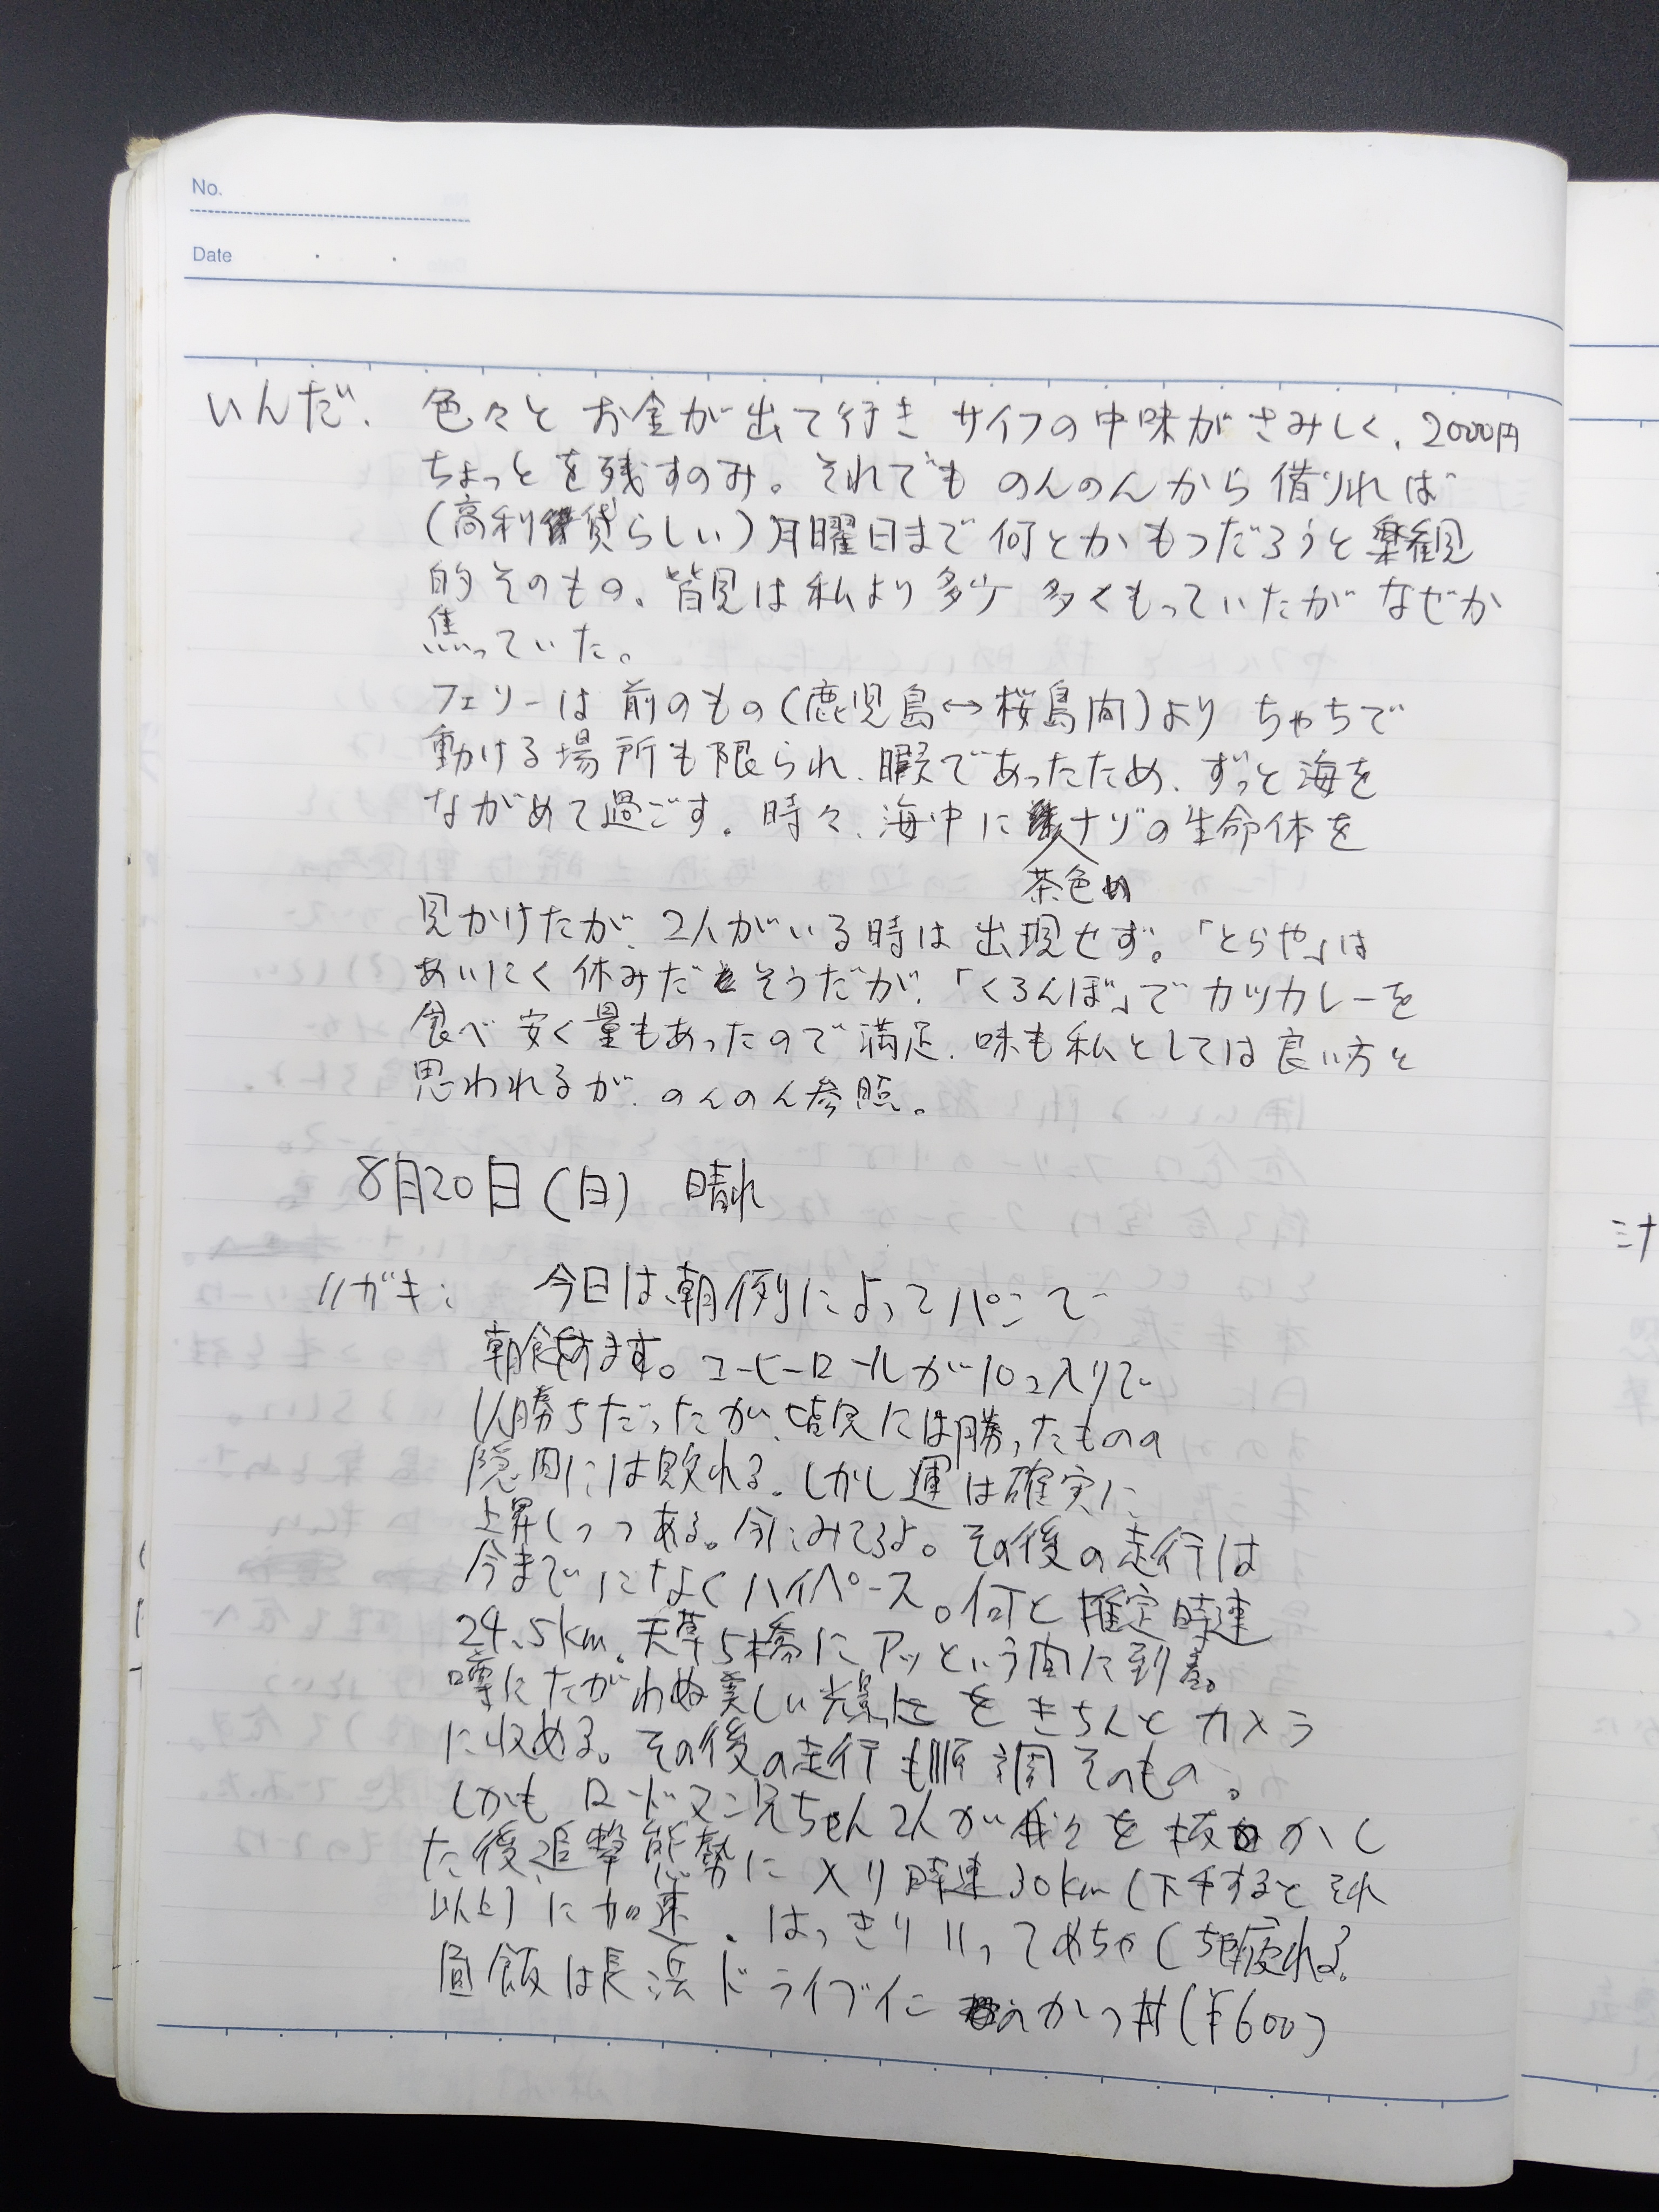 No.
Date
いんだ、 色々と お金が出て行き サイフの中味がさみしく、2000円
ちょっとを残すのみ。それでも のんのんから借りれば
(高利貸らしい)月曜日まで何とかもつだろうと楽観
的そのもの、皆見は私より多少 多くもっていたが なぜか
焦っていた。
フェリーは前のもの(鹿児島↔桜島間)より ちゃちで
動ける場所も限られ、暇であったため、ずっと海を
ながめて過ごす。時々、海中に ナゾの生命体を
茶色の
見かけたが、2人がいる時は出現せず。「とらや」は
あいにく休みだそうだが、「くろんぼ」でカツカレーを
食べ安く量もあったので満足、味も私としては良い方と
思われるが、のんのん参照。
8月20日(日) 晴れ
ハガキ: 今日は朝例によってパンで
朝食をすます。コーヒーロールが10コ入りで
1人勝ちだったが、皆見には勝ったものの
隠岡には敗れる。しかし運は確実に
上昇しつつある。今にみてろよ。その後の走行は
今までになくハイペース。何と推定時速
24.5km。天草5橋にアッという間に到着。
噂にたがわぬ美しい光景をきちんとカメラ
に収める。その後の走行も順調そのもの。
しかもロードマン兄ちゃん2人が我々を抜かし
た後追撃態勢に入り時速30km(下手するとそれ
以上)に加速。はっきりいってめちゃくちゃ疲れる。
昼飯は長浜ドライブイン のかつ丼(¥600)